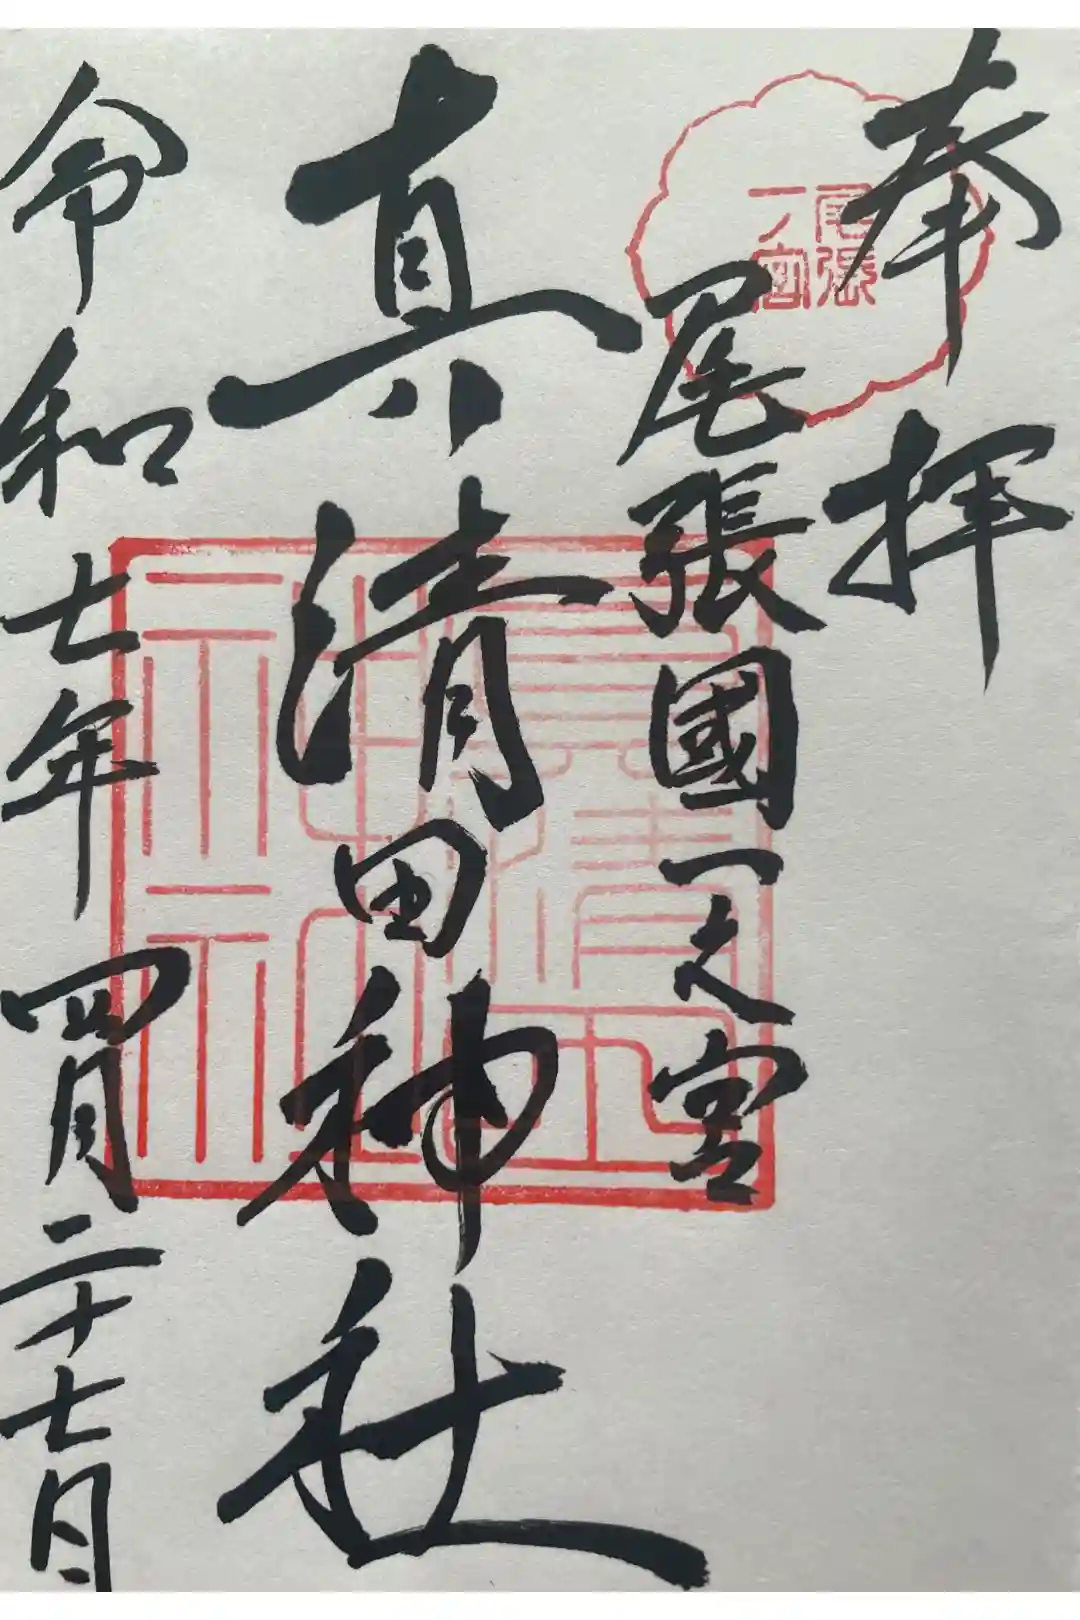 奉拝
尾張
一ノ宮
尾張國一之宮
真清田神社
真清田
神社
令和七年四月二十七日